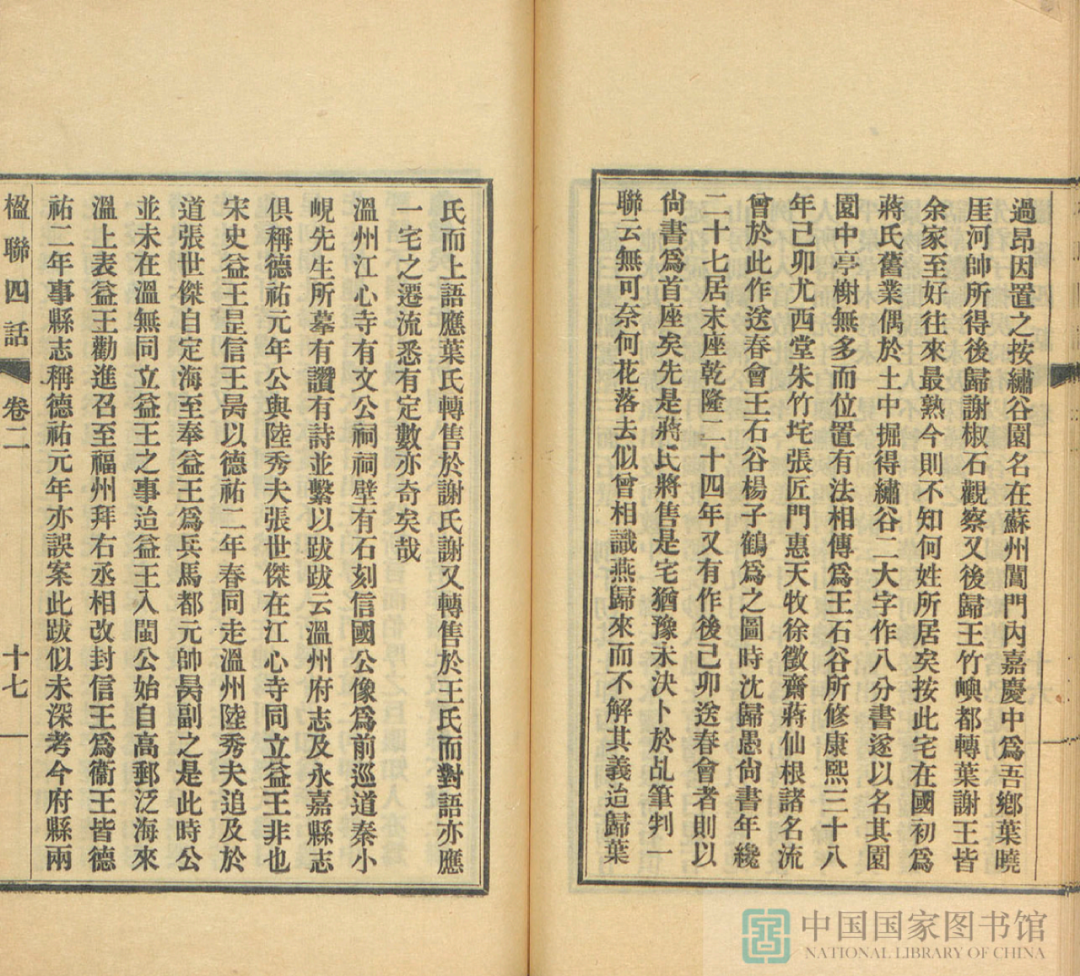 過昂因置之按繡谷園名在蘇州閶門內嘉慶中爲吾鄉葉曉
厓河帥所得後歸謝椒石觀察又後歸王竹嶼都轉葉謝王皆
余家至好往來最熟今則不知何姓所居矣按此宅在國初爲
蔣氏舊業偶於土中掘得繡谷二大字作八分書遂以名其園
園中亭榭無多而位置有法相傳爲王石谷所修康熙三十八
年己卯尤西堂朱竹垞張匠門惠天牧徐徵齋蔣仙根諸名流
曾於此作送春會王石谷楊子鶴爲之圖時沈歸愚尙書年纔
二十七居末座乾隆二十四年又有作後己卯送春會者則以
尙書爲首座矣先是蔣氏將售是宅猶豫未決卜於乩筆判一
聯云無可奈何花落去似曾相識燕歸來而不解其義迨歸葉
氏而上語應葉氏轉售於謝氏謝又轉售於王氏而對語亦應
一宅之遷流悉有定數亦奇矣哉
溫州江心寺有文公祠祠壁有石刻信國公像爲前巡道秦小
峴先生所摹有讚有詩並繫以跋跋云溫州府志及永嘉縣志
俱稱德祐元年公與陸秀夫張世傑在江心寺同立益王非也
宋史益王昰信王昺以德祐二年春同走溫州陸秀夫追及於
道張世傑自定海至奉益王爲兵馬都元帥昺副之是此時公
並未在溫無同立益王之事迨益王入閩公始自高郵泛海來
溫上表益王勸進召至福州拜右丞相改封信王爲衞王皆德
祐二年事縣志稱德祐元年亦誤案此跋似未深考今府縣兩
楹聯四話
卷二
十七
中国国家图书馆
NATIONAL LIBRARY OF CHINA